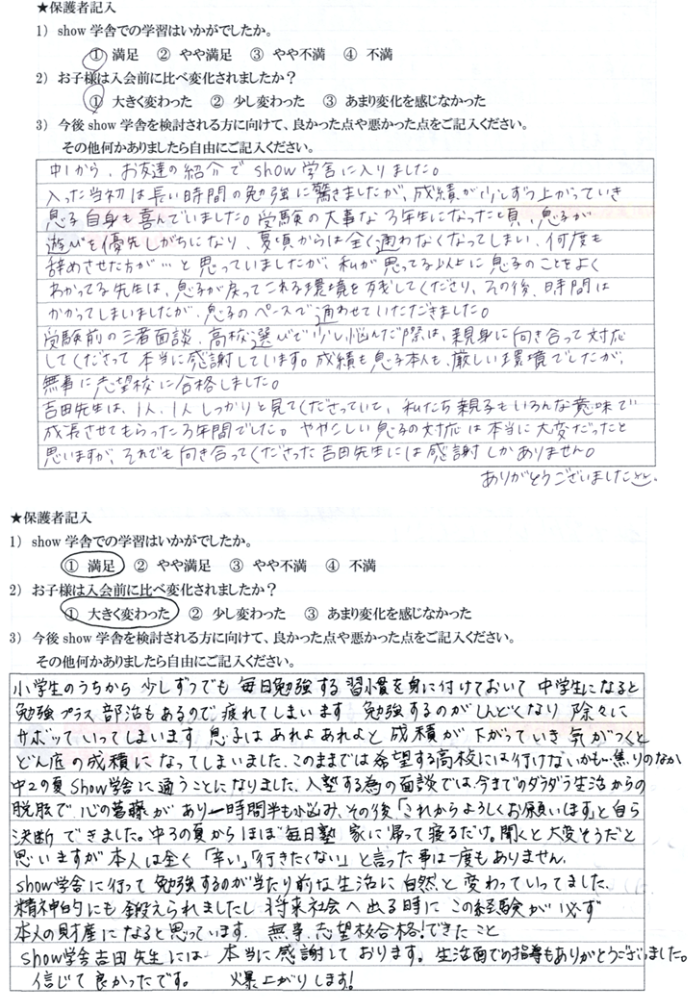 ★保護者記入
1） show 学舎での学習はいかがでしたか。
① 満足 ② やや満足 ③ やや不満 ④ 不満
2） お子様は入会前に比べ変化されましたか？
① 大きく変わった ② 少し変わった ③ あまり変化を感じなかった
3） 今後 show 学舎を検討される方に向けて、良かった点や悪かった点をご記入ください。
その他何かありましたら自由にご記入ください。
中1から、お友達の紹介で show学舎に入りました。
入った当初は長い時間の勉強に驚きましたが、成績が少しずつ上がっていき
息子自身も喜んでいました。受験の大事な3年生になった頃、息子が
遊びを優先しがちになり、夏頃からは全く通わなくなってしまい、何度も
辞めさせた方が…と思っていましたが、私が思ってる以上に息子のことをよく
わかってる先生は、息子が戻ってこれる環境を残してくださり、その後、時間は
かかってしまいましたが、息子のペースで通わせていただきました。
受験前の三者面談、高校選びで少し悩んだ際は、親身に向き合って対応
してくださって本当に感謝しています。成績も息子本人も、厳しい環境でしたが、
無事に志望校に合格しました。
吉田先生は、1人、1人しっかりと見てくださっていて、私たち親子もいろんな意味で
成長させてもらった3年間でした。ややこしい息子の対応は本当に大変だったと
思いますが、それでも向き合ってくださった吉田先生には感謝しかありません。
ありがとうございました
★保護者記入
1） show 学舎での学習はいかがでしたか。
① 満足 ② やや満足 ③ やや不満 ④ 不満
2） お子様は入会前に比べ変化されましたか？
① 大きく変わった ② 少し変わった ③ あまり変化を感じなかった
3） 今後 show 学舎を検討される方に向けて、良かった点や悪かった点をご記入ください。
その他何かありましたら自由にご記入ください。
小学生のうちから 少しずつでも 毎日勉強する 習慣を身に付けておいて 中学生になると
勉強プラス 部活もあるので 疲れてしまいます 勉強するのがしんどくなり 除々に
サボッていってしまいます 息子は あれよあれよと 成績が 下がっていき 気がつくと
どん底の成績に なってしまいました。このままでは希望する高校には行けないかも…焦りのなか
中2の夏 Show学舎に通うことになりました。入塾する為の面談では、今までのダラダラ生活からの
脱脱で 心の葛藤が あり一時間半も悩み、その後「これからよろしくお願いします」と自ら
決断 できました。中3の夏からほぼ毎日塾 家に帰って寝るだけ。聞くと大変そうだと
思いますが本人は全く「辛い」「行きたくない」と言った事は一度もありません。
show学舎に行って 勉強するのが当たり前な生活に自然と変わっていってました。
精神的にも鍛えられましたし 将来社会へ出る時に この経験が 必ず
本人の財産になると思っています。無事、志望校合格！できたこと
show学舎吉田先生には 本当に感謝しております。生活面での指導もありがとうございました。
信じて良かったです。 爆上がりします！